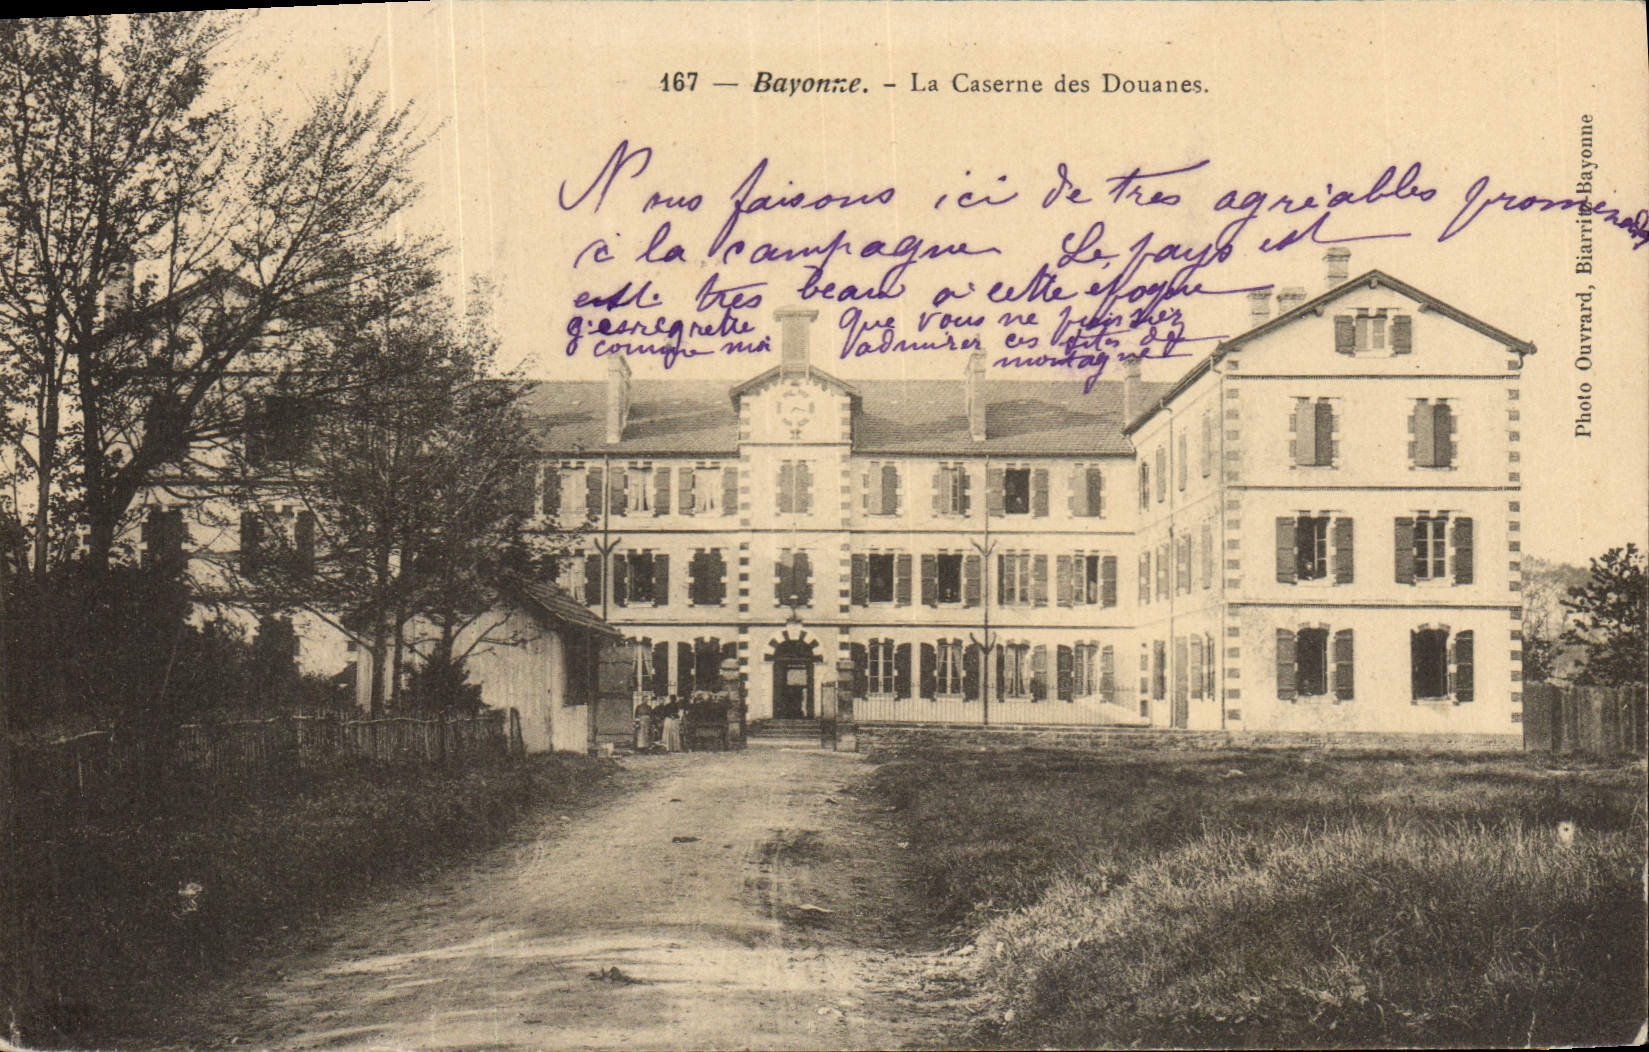 167 — Bayonne. - La Caserne des Douanes.
Nous faisons ici de tres agréables promenades
à la campagne Le pays est
est tres beau a cette epoque
que vous ne puissiez
comme moi admirer ces sites de
montagne
Photo Ouvrard, Biarritz-Bayonne